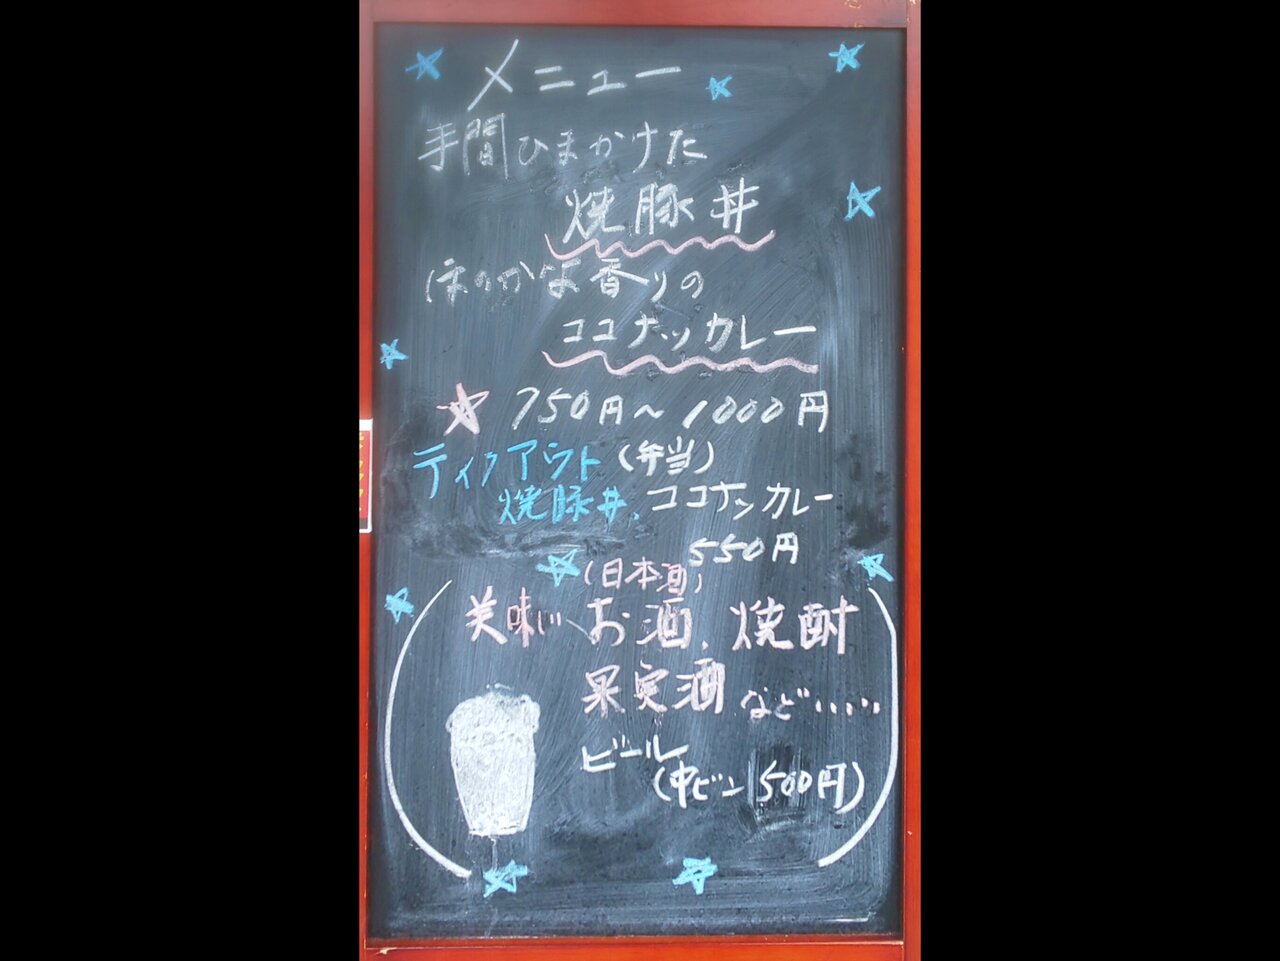 メニュー
手間ひまかけた
焼豚丼
ほのかな香りの
ココナッツカレー
750円〜1000円
テイクアウト(弁当)
焼豚丼、ココナッツカレー
550円
(日本酒)
美味しいお酒、焼酎
果実酒 など……
ビール
(中ビン 500円)